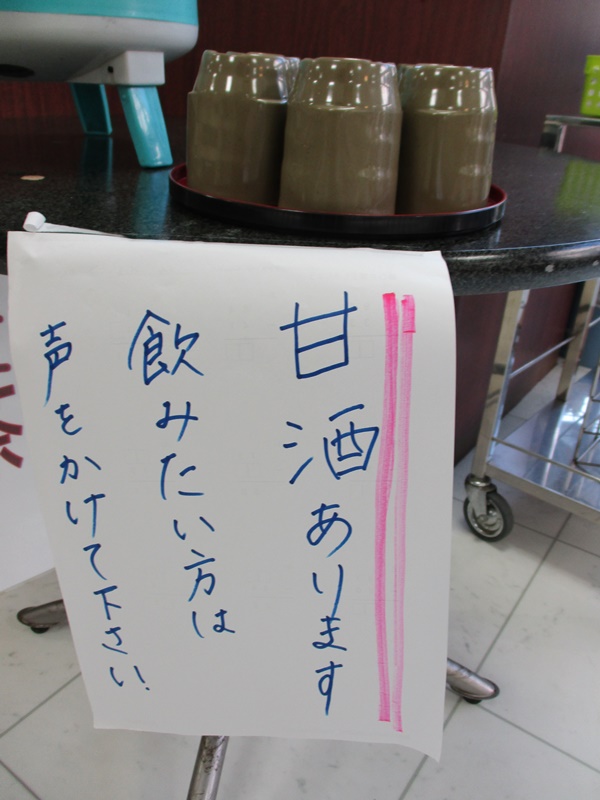 甘酒あります
飲みたい方は
声をかけて下さい!